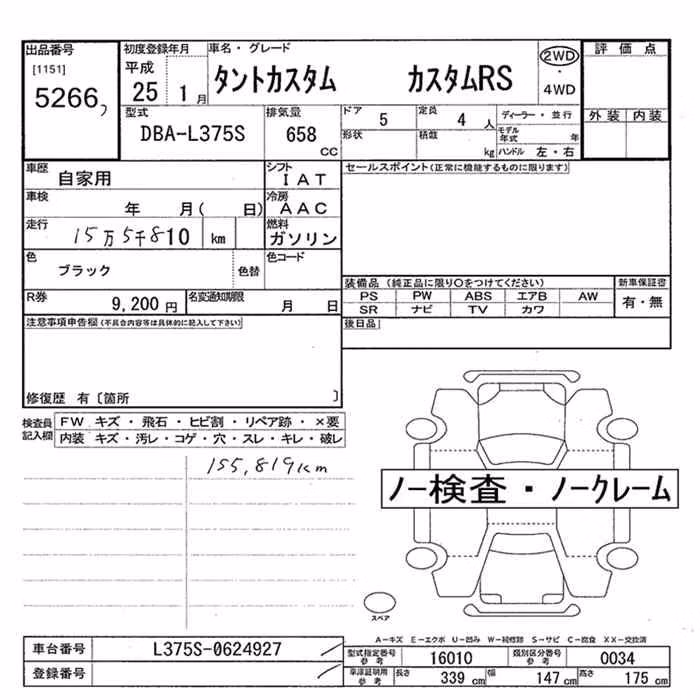 出品番号
[1151]
5266
初度登録年月
平成
25 1 月
車名・グレード
タントカスタム カスタムRS
2WD
・
4WD
評価点
外装 内装
型式
DBA-L375S
排気量
658
CC
ドア 5
定員 4 人
形状
積載 kg
ディーラー・並行
モデル年式 年
ハンドル 左・右
車歴
自家用
シフト
IAT
車検
年 月( 日)
冷房
AAC
走行
15万5千810 km
燃料
ガソリン
色
ブラック
色替
色コード
R券
9,200 円
名変通知期限
月 日
セールスポイント(正常に機能するものに限ります)
装備品 (純正品に限り○をつけてください)
新車保証書
PS PW ABS エアB AW
SR ナビ TV カワ
有・無
後日品
注意事項申告欄(不具合内容等は具体的に記入して下さい)
修復歴 有〔箇所 〕
検査員
記入欄
FW キズ・飛石・ヒビ割・リペア跡・×要
内装 キズ・汚レ・コゲ・穴・スレ・キレ・破レ
155,819km
ノー検査・ノークレーム
スペア
A-キズ E-エクボ U-凹み W-補修跡 S-サビ C-腐食 XX-交換済
車台番号 L375S-0624927
登録番号
型式指定番号
参考
16010
類別区分番号
参考
0034
車庫証明用
参考
長さ 339 cm
幅 147 cm
高さ 175 cm